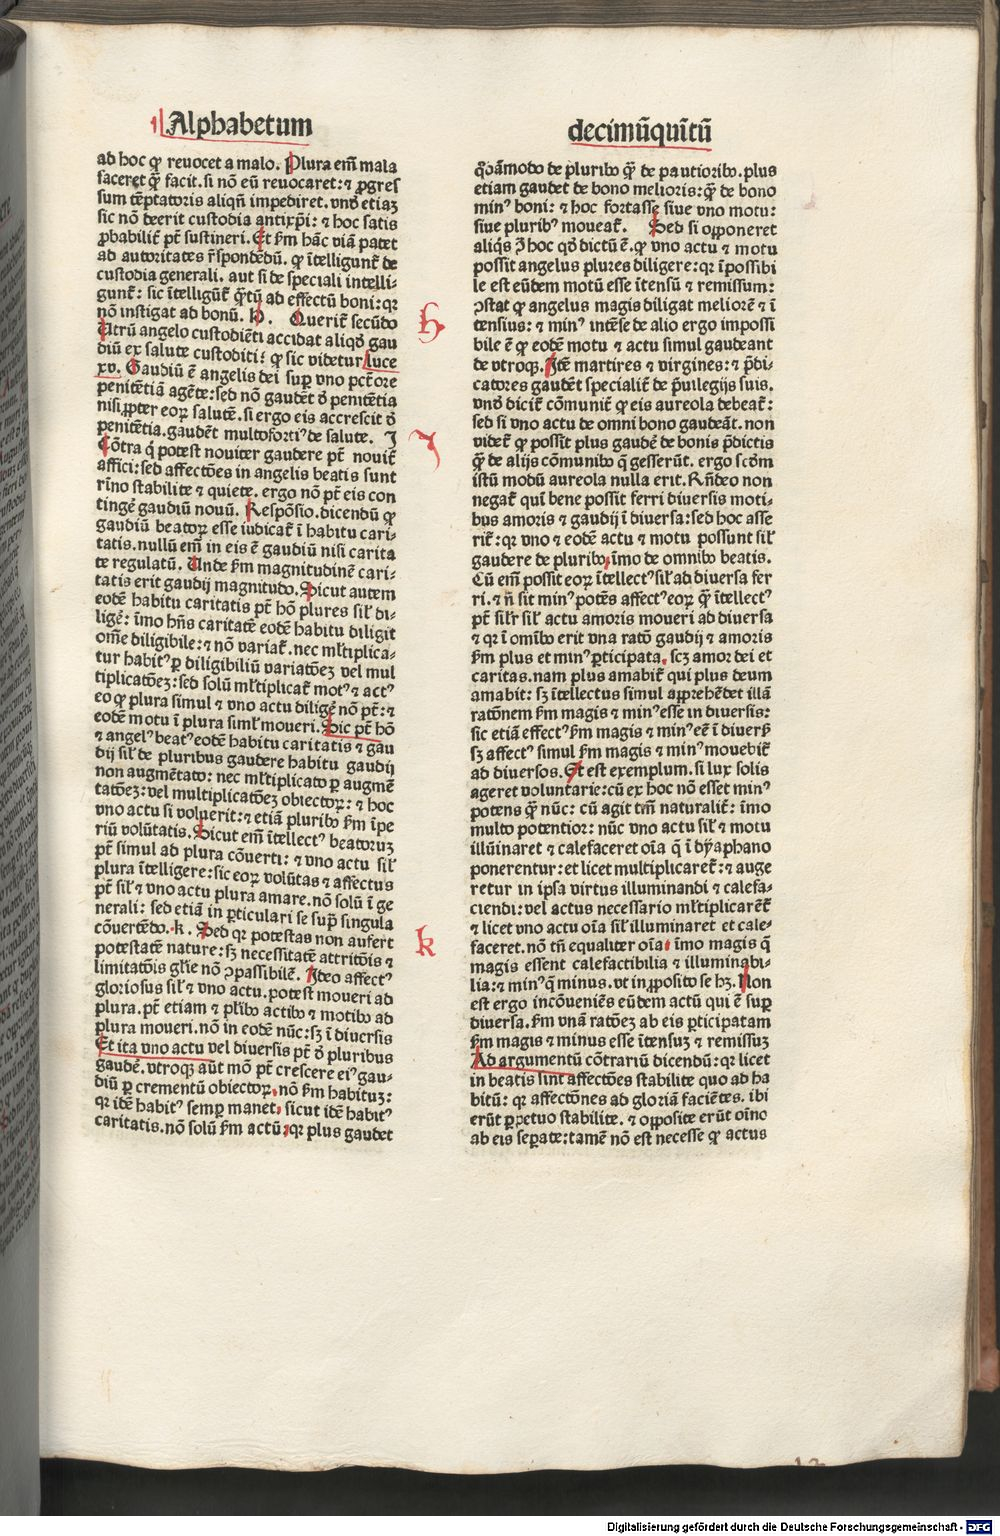 Alphabetum
decimūquītū
ad hoc ꝙ reuocet a malo. Plura em̄ mala
faceret q̄ꝫ facit. si nō eū reuocaret: ⁊ ꝓgres
sum tēptatoris aliqn̄ impediret. vnd̓ etiaꝫ
sic nō deerit custodia antixp̄i: ⁊ hoc satis
ꝓbabilit̓ pt̄ sustineri. Et s̄m hāc viā patet
ad autoritates r̄spondēdū. ꝙ ītelligunt̓ de
custodia generali. aut si de speciali intelli-
gunt̓: sic ītelligūt̓ q̄tū ad effectū boni: qꝛ
nō instigat ad bonū. H. Querit̓ secūdo
Utrū angelo custodiēti accidat aliqd̓ gau
diū ex salute custoditi? ꝙ sic videtur luce
xv. Gaudiū ē angelis dei suꝑ vno pct̄ore
penitētiā agēte: sed nō gaudēt d̓ penitētia
nisi ꝓpter eoꝝ salutē. si ergo eis accrescit d̓
penitētia. gaudēt multofortiꝰ de salute. J
Cōtra q̓ potest nouiter gaudere pt̄ nouit̓
affici: sed affectōes in angelis beatis sunt
rīno stabilite ⁊ quiete. ergo nō pt̄ eis con
tingē gaudiū nouū. Respōsio. dicendū ꝙ
gaudiū beatoꝝ esse iudicat̓ ī habitu cari-
tatis. nullū em̄ in eis ē gaudiū nisi carita
te regulatū. Unde s̄m magnitudinē cari-
tatis erit gaudij magnitudo. Sicut autem
eodē habitu caritatis pt̄ hō plures sil̓ di-
ligē: īmo hn̄s caritatē eodē habitu diligit
om̄e diligibile: ⁊ nō variat̓. nec ml̓tiplica-
tur habitꝰ ꝑ diligibiliū variatōeꝫ vel mul
tiplicatōeꝫ: sed solū ml̓tiplicat̓ motꝰ ⁊ actꝰ
eo ꝙ plura simul ⁊ vno actu diligē nō pt̄: ⁊
eodē motu ī plura siml̓ moueri. Sic pt̄ hō
⁊ angelꝰ beatꝰ eodē habitu caritatis ⁊ gau
dij sil̓ de pluribus gaudere habitu gaudij
non augmētato: nec ml̓tiplicato ꝑ augmē
tatōeꝫ: vel multiplicatōeꝫ obiectoꝝ: ⁊ hoc
vno actu si voluerit: ⁊ etiā pluribꝰ s̄m īpe
riū volūtatis. Sicut em̄ ītellectꝰ beatoruꝫ
pt̄ simul ad plura cōuerti: ⁊ vno actu sil̓
plura ītelligere: sic eoꝝ volūtas ⁊ affectus
pt̄ sil̓ ⁊ vno actu plura amare. nō solū ī ge
nerali: sed etiā in ꝑticulari se suꝑ singula
cōuertēdo. k. Sed qꝛ potestas non aufert
potestatē nature: sꝫ necessitatē attritōis ⁊
limitatōis gl̓ie nō ꝯpassibilē. Ideo affectꝰ
gloriosus sil̓ ⁊ vno actu. potest moueri ad
plura. pt̄ etiam ⁊ pl̓ibꝰ actibꝰ ⁊ motibꝰ ad
plura moueri. nō in eodē nūc: sꝫ ī diuersis
Et ita vno actu vel diuersis pt̄ d̓ pluribus
gaudē. vtroqꝫ aūt mō pt̄ crescere eiꝰ gau-
diū ꝑ crementū obiectoꝝ. nō s̄m habituꝫ:
qꝛ idē habitꝰ semꝑ manet. sicut idē habitꝰ
caritatis. nō solū s̄m actū: qꝛ plus gaudet
h
J
k
q̄dāmodo de pluribꝰ q̄ꝫ de pautioribꝰ. plus
etiam gaudet de bono melioris: q̄ꝫ de bono
minꝰ boni: ⁊ hoc fortasse siue vno motu:
siue pluribꝰ moueat̓. Sed si opponeret
aliqs̓ ꝫ hoc qd̓ dictū ē. ꝙ vno actu ⁊ motu
possit angelus plures diligere: qꝛ īpossibi
le est eūdem motū esse ītensū ⁊ remissum:
ꝯstat ꝙ angelus magis diligat meliorē ⁊ ī
tensius: ⁊ minꝰ intēse de alio ergo impossi
bile ē ꝙ eodē motu ⁊ actu simul gaudeant
de vtroqꝫ. Itē martires ⁊ virgines: ⁊ p̄di-
catores gaudēt specialit̓ de p̓uilegijs suis.
vnd̓ dicit̓ cōmunit̓ ꝙ eis aureola debeat̓:
sed si vno actu de omni bono gaudeāt. non
videt̓ ꝙ possit plus gaudē de bonis p̄dictis
q̄ꝫ de alijs cōmunibꝰ q̄ gesserūt. ergo scd̓m
istū modū aureola nulla erit. Rn̄deo non
negat̓ quī bene possit ferri diuersis moti-
bus amoris ⁊ gaudij ī diuersa: sed hoc asse
rit̓: qꝛ vno ⁊ eodē actu ⁊ motu possunt sil̓
gaudere de pluribꝰ, īmo de omnibꝰ beatis.
Cū em̄ possit eoꝝ ītellectꝰ sil̓ ad diuersa fer
ri. ⁊ n̄ sit minꝰ potēs affectꝰ eoꝝ q̄ꝫ ītellectꝰ
pt̄ sil̓r sil̓ actu amoris moueri ad diuersa
⁊ qꝛ ī om̄ibꝰ erit vna ratō gaudij ⁊ amoris
s̄m plus et minꝰ ꝑticipata. scꝫ amor dei et
caritas. nam plus amabit̓ qui plus deum
amabit: sꝫ ītellectus simul apprehēdet illā
ratōnem s̄m magis ⁊ minꝰ esse in diuersis:
sic etiā effectꝰ s̄m magis ⁊ minꝰ eē ī diuers̓
sꝫ affectꝰ simul s̄m magis ⁊ minꝰ mouebit̓
ad diuersos. Et est exemplum. si lux solis
ageret voluntarie: cū ex hoc nō esset minꝰ
potens q̄ꝫ nūc: cū agit tm̄ naturalit̓: īmo
multo potentior: nūc vno actu sil̓ ⁊ motu
illūinaret ⁊ calefaceret oīa q̄ ī dyaphano
ponerentur: et licet multiplicaret̓: ⁊ auge
retur in ipsa virtus illuminandi ⁊ calefa-
ciendi: vel actus necessario ml̓tiplicarēt̓
⁊ licet vno actu oīa sil̓ illuminaret et cale-
faceret. nō tn̄ equaliter oīa: īmo magis q̄
magis essent calefactibilia ⁊ illuminabi-
lia: ⁊ minꝰ q̄ minus. vt in ꝓposito se hꝫ. Non
est ergo incōueniēs eūdem actū qui ē suꝑ
diuersa. s̄m vnā ratōeꝫ ab eis ꝑticipatam
s̄m magis ⁊ minus esse ītensuꝫ ⁊ remissuꝫ
Ad argumentū cōtrariū dicendū: qꝛ licet
in beatis sint affectōes stabilite quo ad ha
bitū: qꝛ affectōnes ad gloriā faciētes. ibi
erūt ꝑpetuo stabilite. ⁊ opposite erūt oīno
ab eis seperate: tamē nō est necesse ꝙ actus
Digitalisierung gefördert durch die Deutsche Forschungsgemeinschaft - DFG